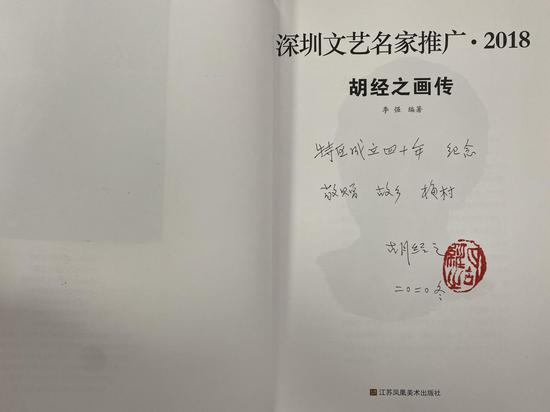 深圳文艺名家推广·2018
胡经之画传
李强 编著
特区成立四十年 纪念
敬赠 故乡 梅村
胡经之
二〇二〇冬
江苏凤凰美术出版社